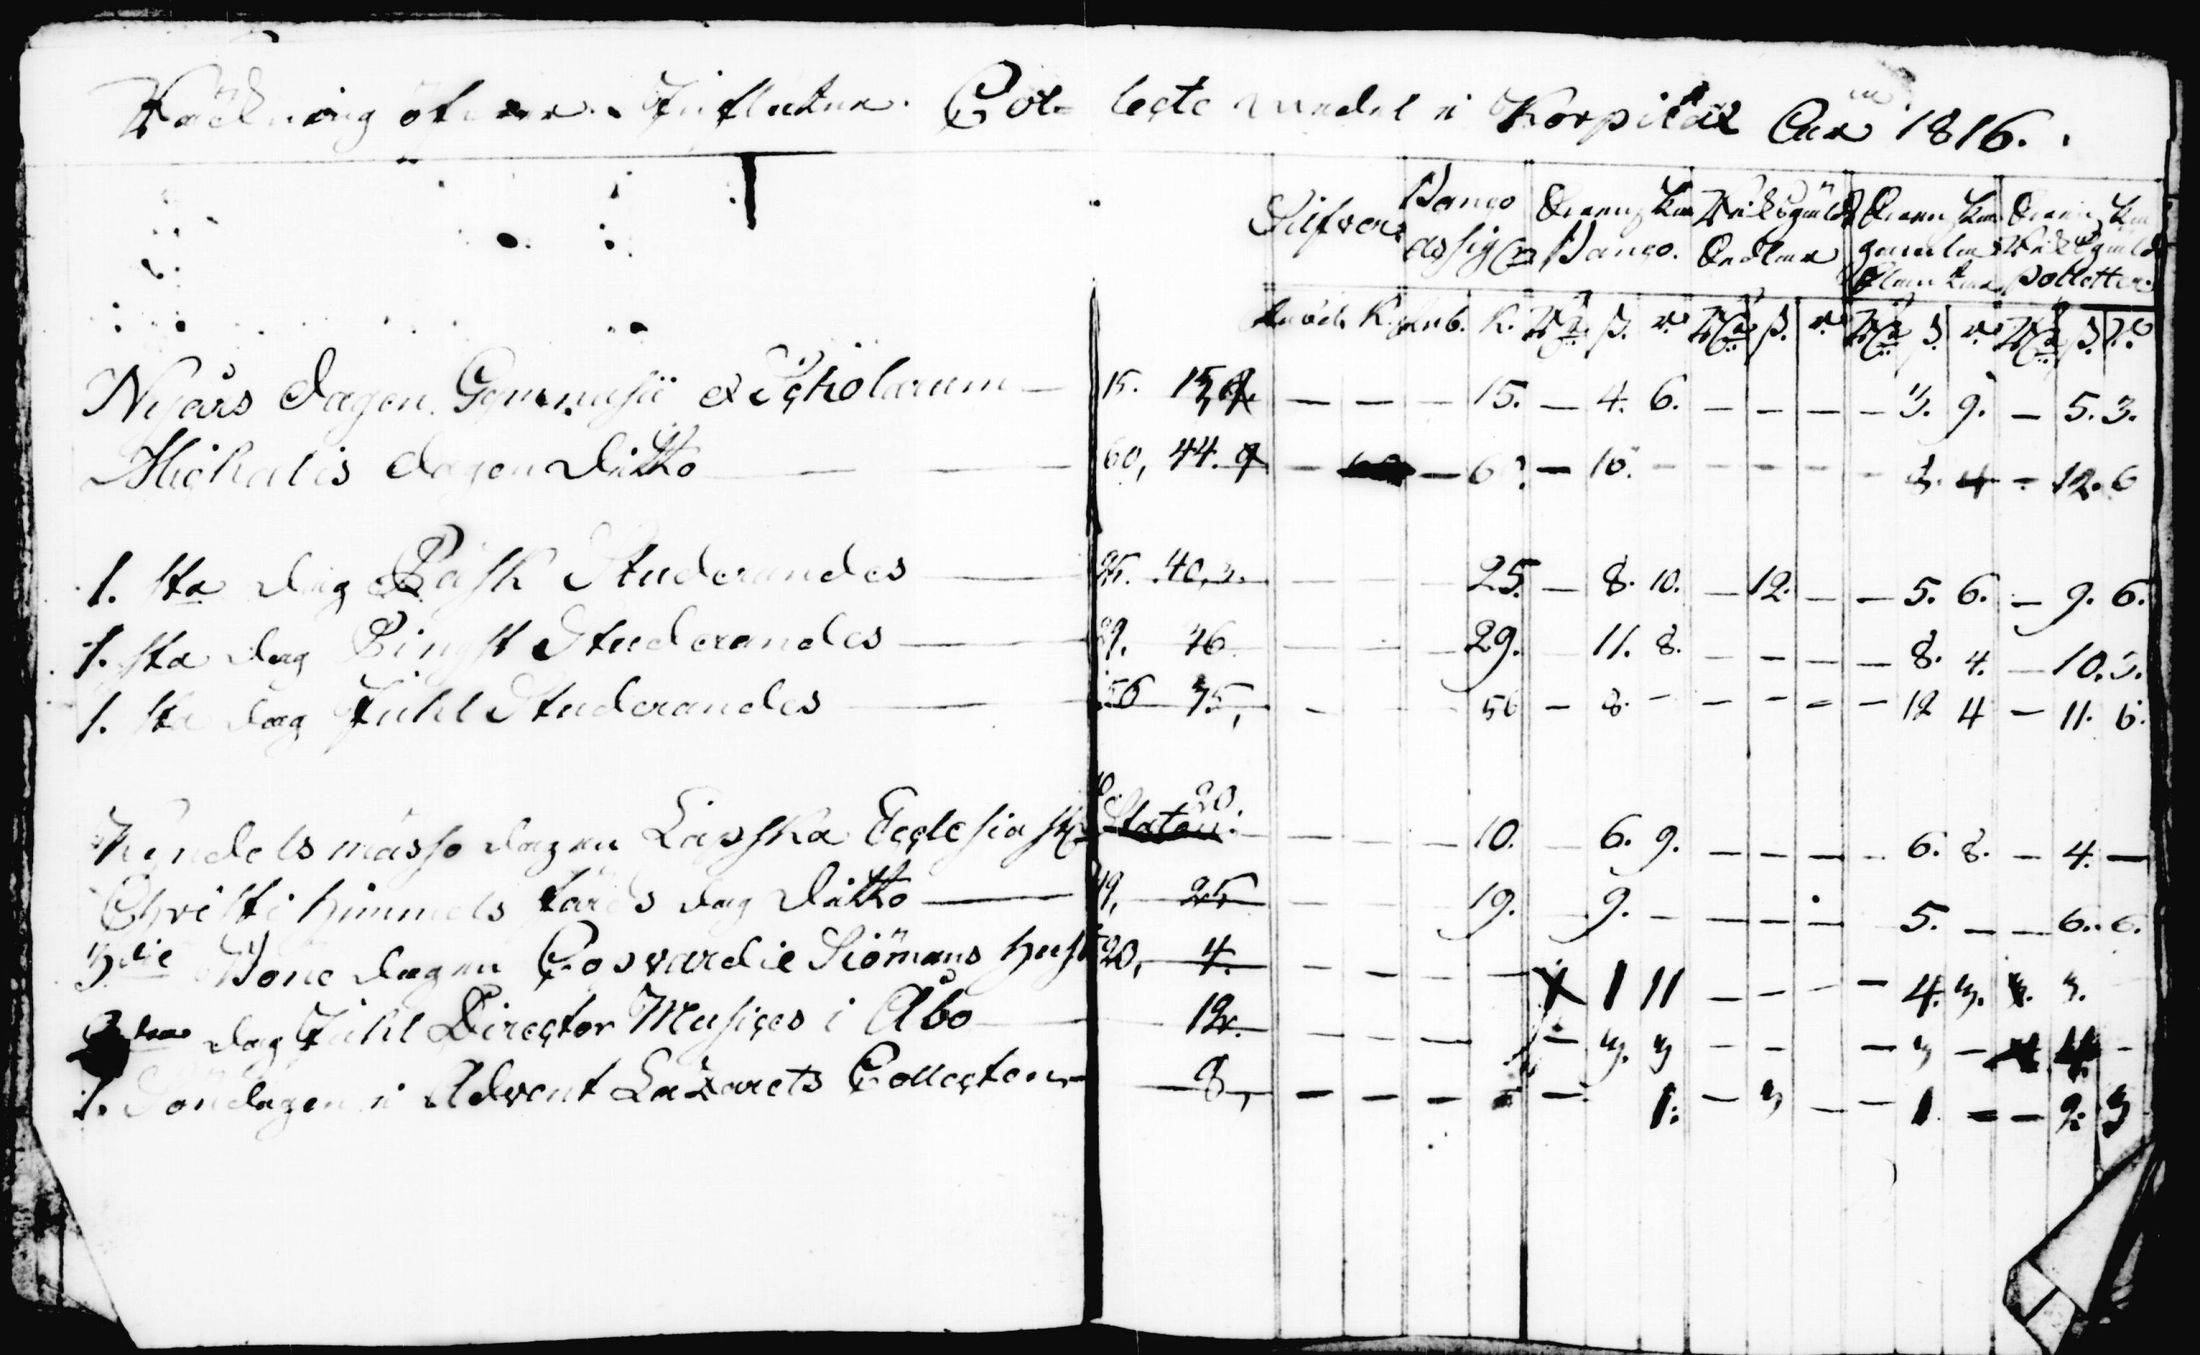 Räckning öfver Influtne Collecte medel i Korpilax Åhr 1816.
Silfver Banco assign Svenska Banco. Riksgäld Sedlar Svenska gamla Slantar Svenska Riksgäld Polletter
Rub. K. Rub. K. Rd. ß. r. Rd. ß. r. Rd. ß. r. Rd. ß. r.
Nyårs dagen Gymnasii & Scholarum — 15. — — — 15. — 4. 6. — — — — 3. 9. — 5. 3.
Michaelis dagen Ditto — 60, 44. 9 — — 60. — 10. — — — — — 3. 4 — 12. 6
1. sta dag Påsk Studerandes — 25. 40, 3. — — — 25. — 8. 10. — 12. — — 5. 6. — 9. 6.
1. sta dag Pingst Studerandes — 29. 46 — — — 29. — 11. 8. — — — — 8. 4. — 10. 3.
1. sta dag Juhl Studerandes — 56 75, — — — 56 — 8. — — — — — 12 4 — 11. 6.
10 20.
Kyndelsmässo dagen Lapska Ecclesiastique Staten. — — — 10. — 6. 9. — — — — 6. 8. — 4. —
Christi himmels färds dag Ditto — 19, 25 — — — 19. — 9. — — — — — 5. — — 6. 6.
3die Böne dagen Copvardie Siömans huset 20, 4. — — — — 1 11 — — — — 4. 3. 3.
dag Juhl Director Musices i Åbo — 12. — — — — 3. 3 — — — 3 — 4. —
1. Söndagen i Advent Lazarets Collecten — 8, — — — — 1. — 3 — — 1. — — 9. 3